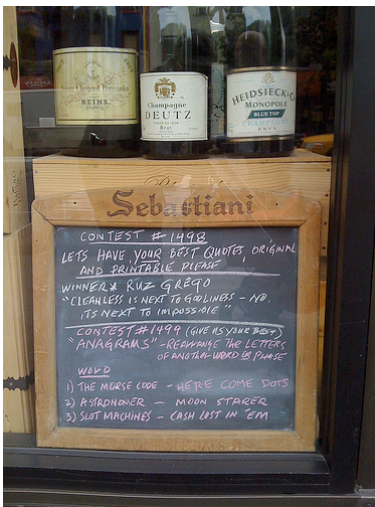 REIMS
Champagne
DEUTZ
Brut
HEIDSIECK & Co
MONOPOLE
BLUE TOP
CHAMPAGNE
Sebastiani
CONTEST # 1498
LETS HAVE YOUR BEST QUOTES, ORIGINAL
AND PRINTABLE PLEASE
WINNER RUZ GREGO
"CLEANLESS IS NEXT TO GODLINESS - NO.
ITS NEXT TO IMPOSSIBLE"
CONTEST #1499 (GIVE US YOUR BEST)
"ANAGRAMS" - REARRANGE THE LETTERS
OF ANOTHER WORD OR PHASE
WORD
1) THE MORSE CODE - HERE COME DOTS
2) ASTRONOMER - MOON STARER
3) SLOT MACHINES - CASH LOST IN 'EM